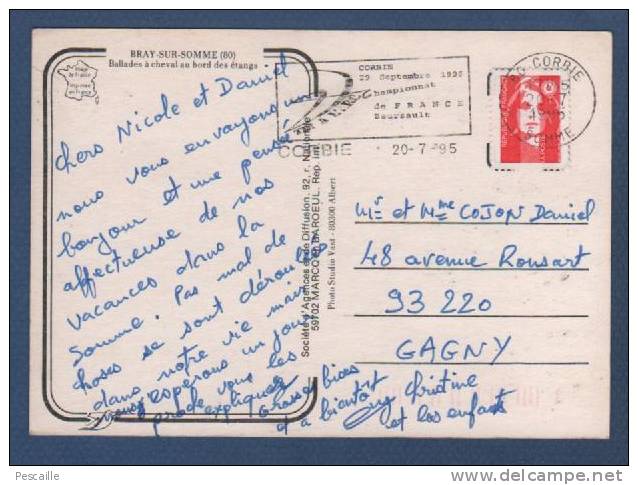 BRAY-SUR-SOMME (80)
Ballades à cheval au bord des étangs
Chers Nicole et Daniel
nous vous envoyons un
bonjour et une pensée
affectueuse de nos
vacances dans la
Somme. Pas mal de
choses se sont déroulées
dans notre vie mais
nous espérons un jour
vous les
expliquez
Grosses bises
à bientôt
Christine
et les enfants
Société d'Agences et de Diffusion, 92, r. Nationale
59702 MARCQ-EN-BAROEUL. Rép. Int.
Photo Studio Vast - 80300 Albert
CORBIE
29 Septembre 1995
Championnat
de FRANCE
CORBIE 20-7-95
80 CORBIE
SOMME
Mr et Mme COJON Daniel
48 avenue Ronsart
93 220
GAGNY
Pescaille
http://www.delcampe.net